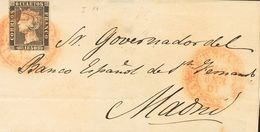 6 CUARTOS
CORREOS
1850
Sr. Governador del
Banco Español de Sn. Fernando
Madrid